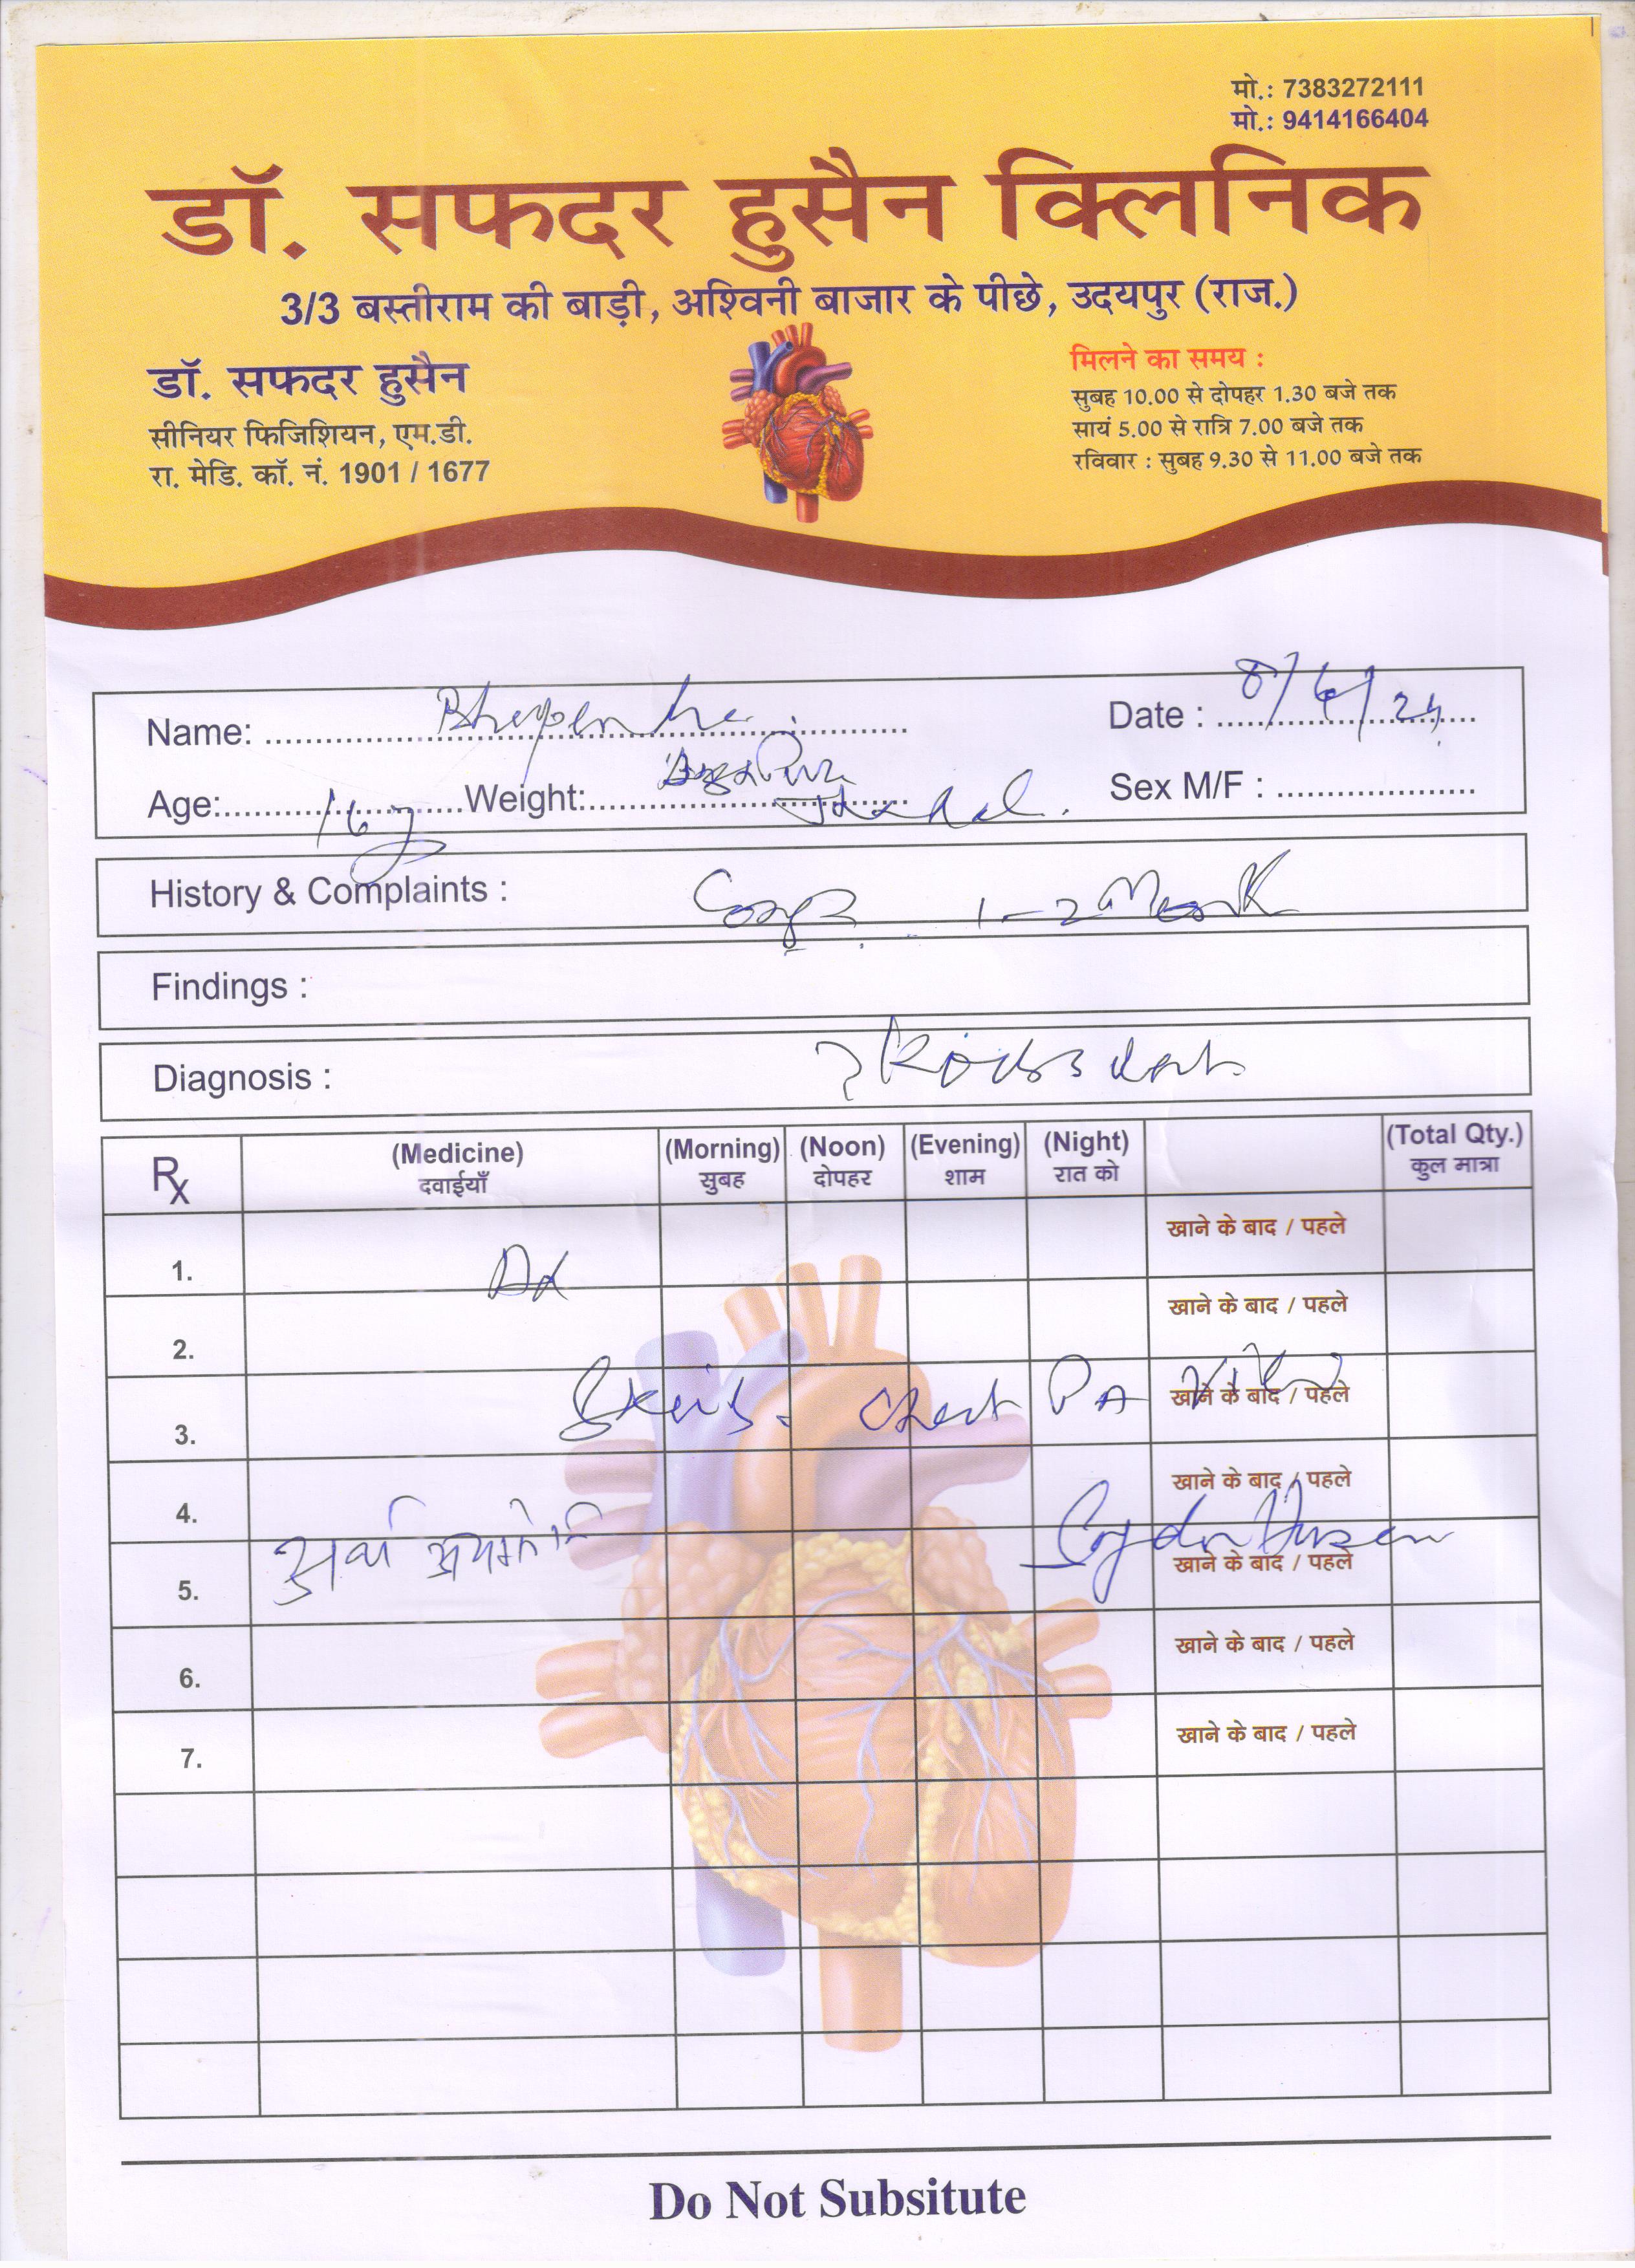 मो.: 7383272111
मो.: 9414166404
डॉ. सफदर हुसैन क्लिनिक
3/3 बस्तीराम की बाड़ी, अश्विनी बाजार के पीछे, उदयपुर (राज.)
डॉ. सफदर हुसैन
सीनियर फिजिशियन, एम.डी.
रा. मेडि. कॉ. नं. 1901 / 1677
मिलने का समय :
सुबह 10.00 से दोपहर 1.30 बजे तक
सायं 5.00 से रात्रि 7.00 बजे तक
रविवार : सुबह 9.30 से 11.00 बजे तक
Name: Date : 8/6/24
Age: 16y Weight: Sex M/F :
History & Complaints : 1-2 Month
Findings :
Diagnosis :
Rx (Medicine) (Morning) (Noon) (Evening) (Night) (Total Qty.)
दवाईयाँ सुबह दोपहर शाम रात को कुल मात्रा
1. खाने के बाद / पहले
2. खाने के बाद / पहले
3. Chest PA View खाने के बाद / पहले
4. खाने के बाद / पहले
5. खाने के बाद / पहले
6. खाने के बाद / पहले
7. खाने के बाद / पहले
Do Not Subsitute